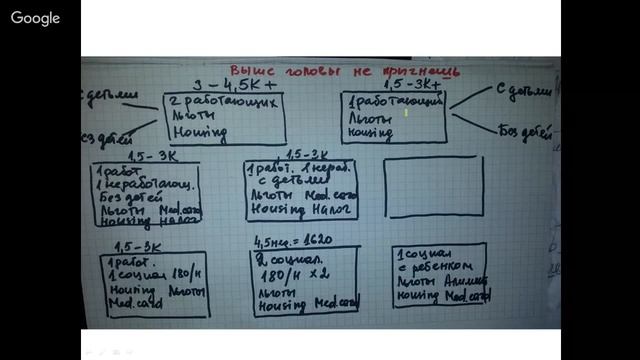 Google
Выше головы не прыгнешь
3 - 4,5K +
1,5 - 3K+
с детьми
2 работающих
Льготы
Housing
1 работающий
Льготы
Housing
С детьми
без детей
Без детей
1,5 - 3K
1 работ
1 неработающ.
Без детей
Льготы Med.card
Housing Налог
1,5 - 3K
1 работ. 1 нераб.
с детьми
Льготы Med.card
Housing Налог
1,5 - 3K
1 работ.
1 социал 180/н
Housing Льготы
Med.card
4,5 нед. = 1620
2 социал.
180/н x 2
Льготы
Housing Med.card
1 социал
с ребенком
Льготы Алименты
Housing Med.card